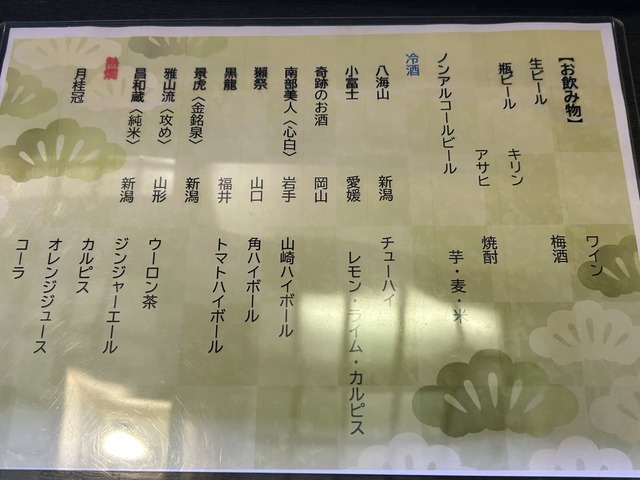 【お飲み物】
生ビール
瓶ビール　キリン
アサヒ
ノンアルコールビール
冷酒
八海山　新潟
小富士　愛媛
奇跡のお酒　岡山
南部美人〈心白〉　岩手
獺祭　山口
黒龍　福井
景虎〈金銘泉〉　新潟
雅山流〈攻め〉　山形
昌和蔵〈純米〉　新潟
熱燗
月桂冠
ワイン
梅酒
焼酎
芋・麦・米
チューハイ
レモン・ライム・カルピス
山崎ハイボール
角ハイボール
トマトハイボール
ウーロン茶
ジンジャーエール
カルピス
オレンジジュース
コーラ